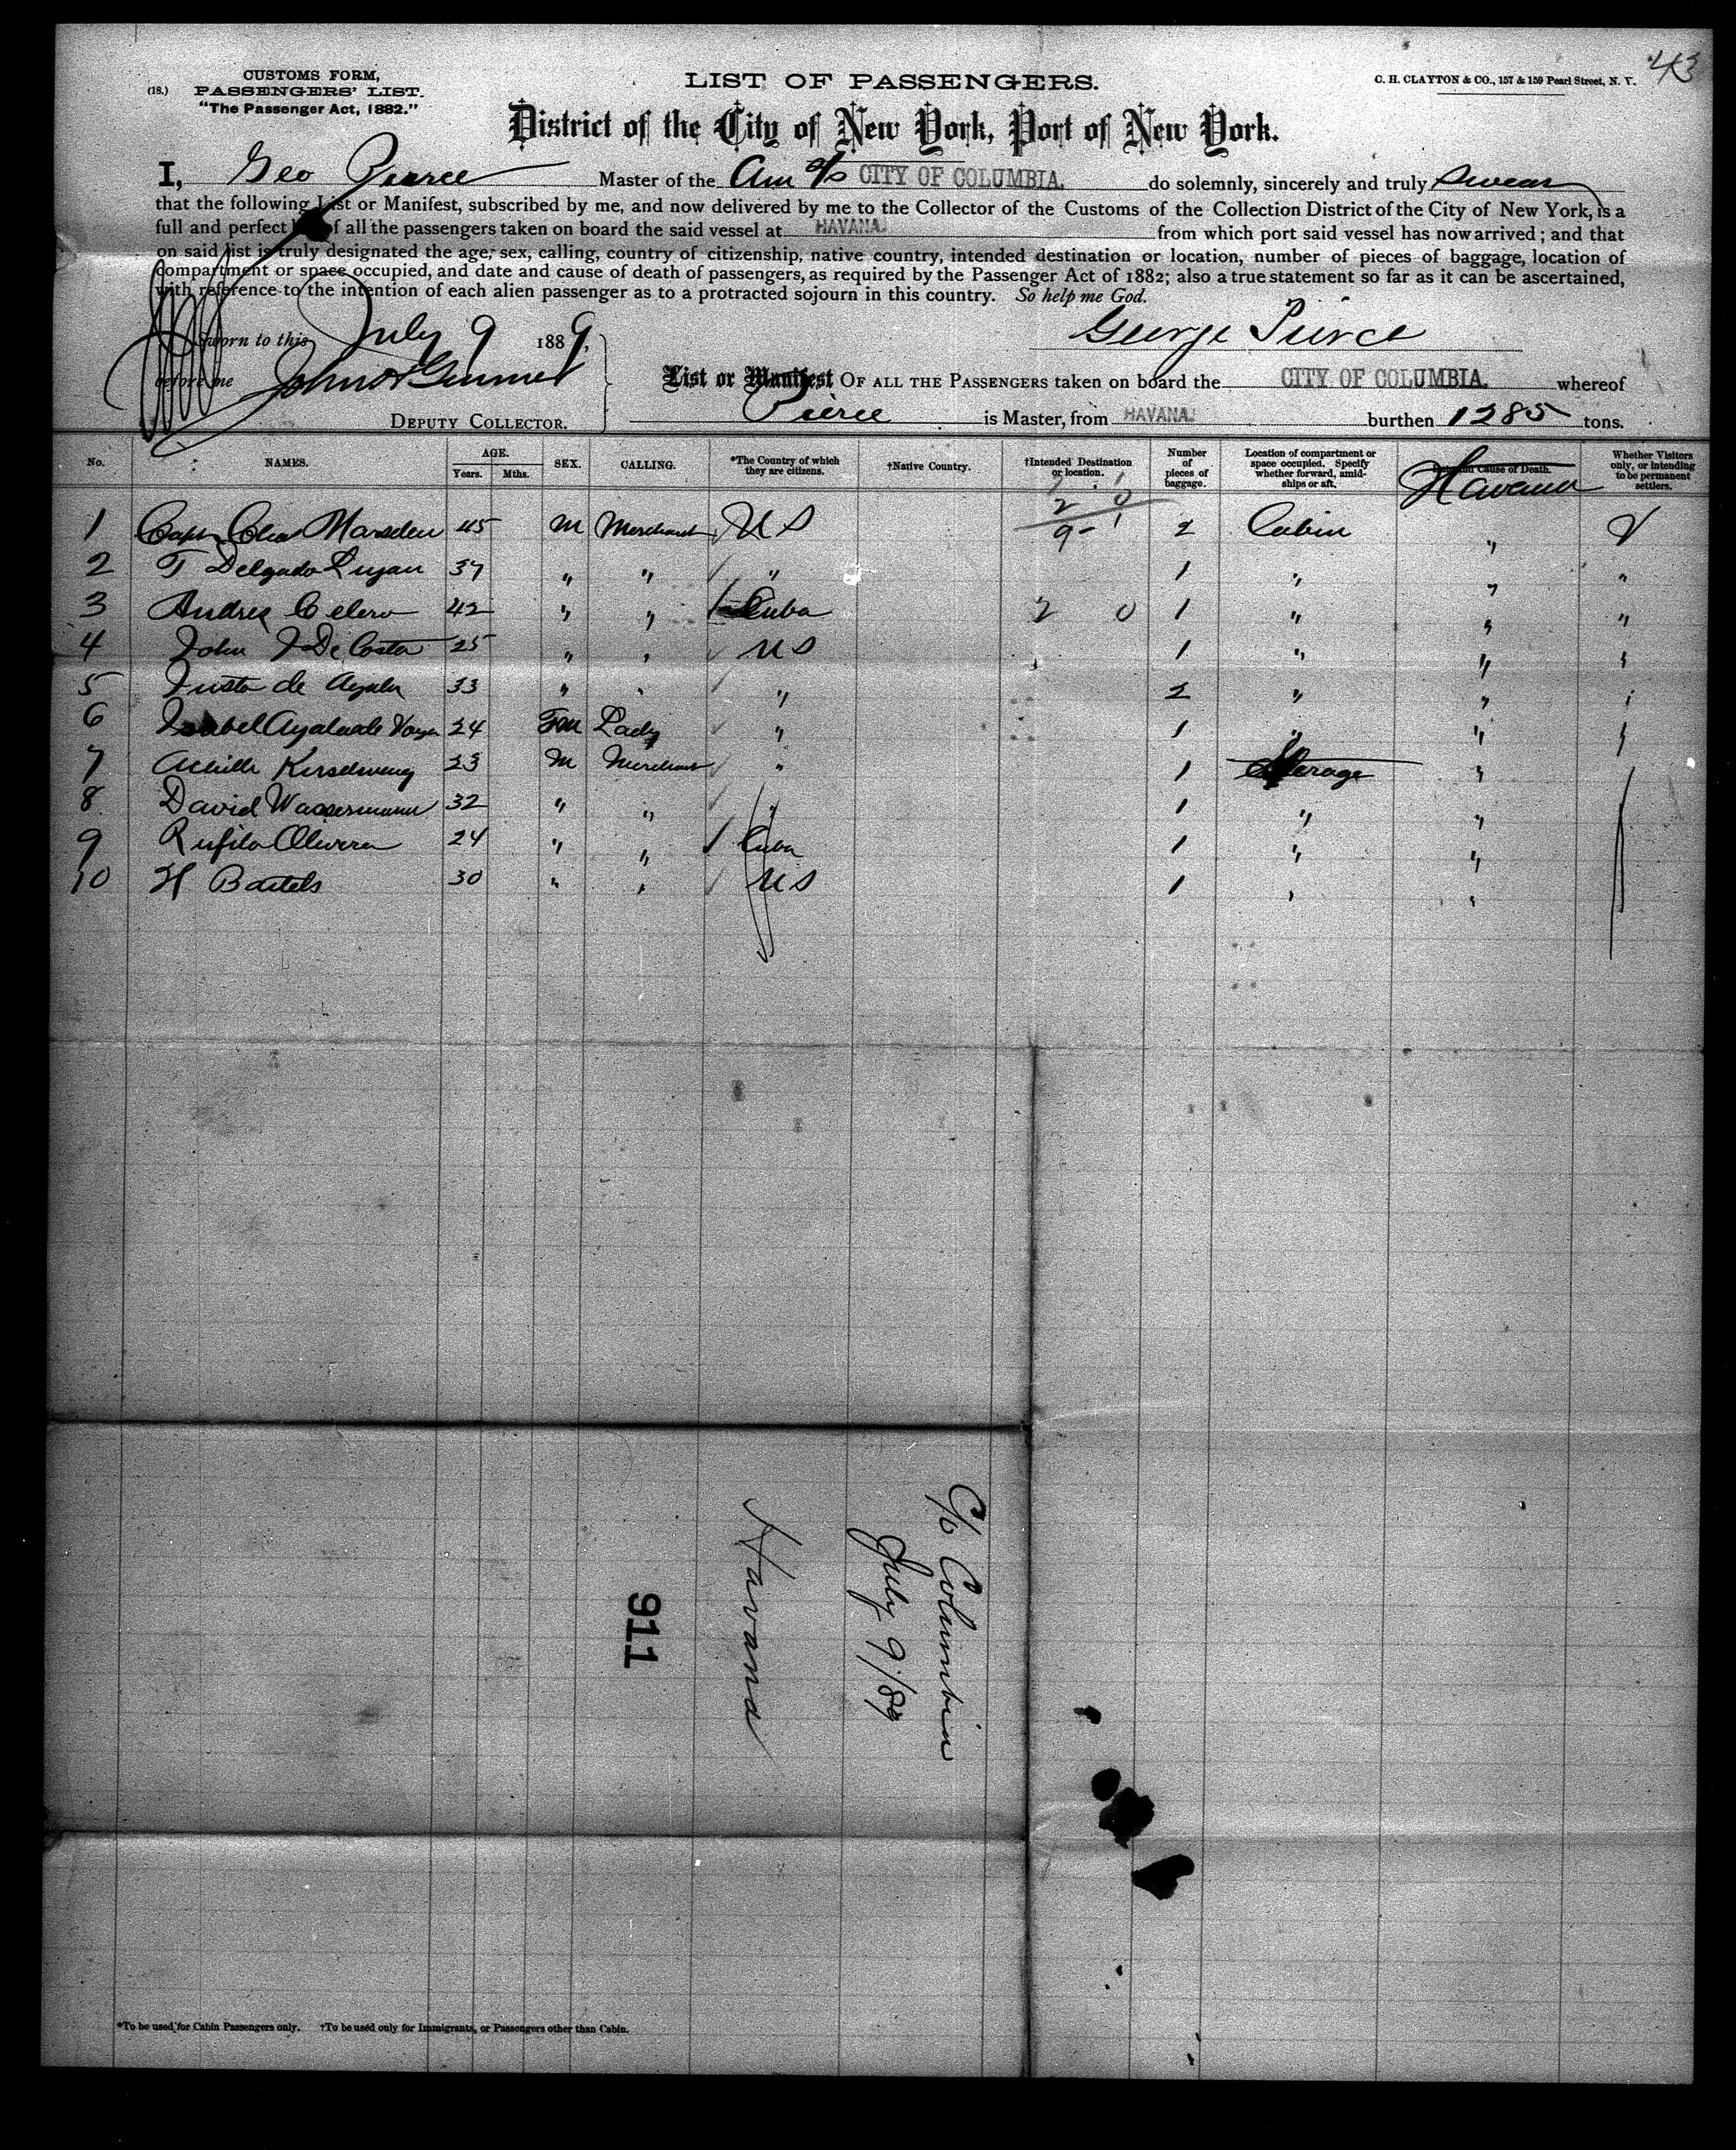 43
(18.)
CUSTOMS FORM,
PASSENGERS' LIST.
"The Passenger Act, 1882."
LIST OF PASSENGERS.
C. H. CLAYTON & CO., 157 & 159 Pearl Street, N. Y.
District of the City of New York, Port of New York.
I, Geo Pierce Master of the Am S/S CITY OF COLUMBIA. do solemnly, sincerely and truly swear
that the following List or Manifest, subscribed by me, and now delivered by me to the Collector of the Customs of the Collection District of the City of New York, is a
full and perfect of all the passengers taken on board the said vessel at HAVANA. from which port said vessel has now arrived; and that
on said list is truly designated the age, sex, calling, country of citizenship, native country, intended destination or location, number of pieces of baggage, location of
compartment or space occupied, and date and cause of death of passengers, as required by the Passenger Act of 1882; also a true statement so far as it can be ascertained,
with reference to the intention of each alien passenger as to a protracted sojourn in this country. So help me God.
Sworn to this July 9 1889,
George Pierce
before me
DEPUTY COLLECTOR.
List or Manifest OF ALL THE PASSENGERS taken on board the CITY OF COLUMBIA. whereof
Pierce is Master, from HAVANA. burthen 1285 tons.
No. NAMES. AGE. Years. Mths. SEX. CALLING. *The Country of which they are citizens. †Native Country. †Intended Destination or location. Number of pieces of baggage. Location of compartment or space occupied. Specify whether forward, amidships or aft. Cause of Death. Havana Whether Visitors only, or intending to be permanent settlers.
2 0
9 - 1
1 Capt Chas Marsden 45 M Merchant US 2 Cabin " V
2 T Delgado Lujan 37 " " " 1 " " "
3 Andres Celero 42 " " Cuba 2 0 1 " " "
4 John J De Costa 25 " " US 1 " " "
5 Justo de Ayala 33 " " " 2 " " "
6 Isabel Ayala de 24 Fem Lady " 1 " " "
7 Achille 23 M Merchant " 1 Sterage "
8 David Wassermann 32 " " " 1 " "
9 Rufilo Olivera 24 " " 1 Cuba 1 " "
10 H Bartels 30 " " US 1 " "
C/o Columbia
July 9/89
Havana
911
*To be used for Cabin Passengers only. †To be used only for Immigrants, or Passengers other than Cabin.